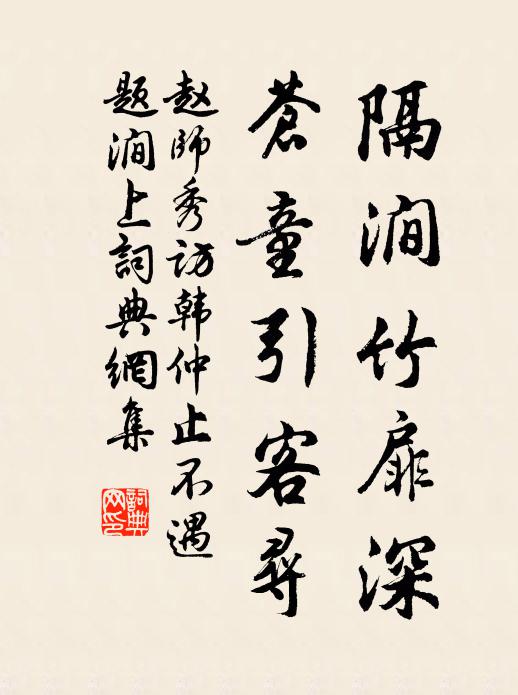 隔澗竹扉深
蒼童引客尋
赵師秀访韩仲止不遇
题澗上詞典網集
詞典网印